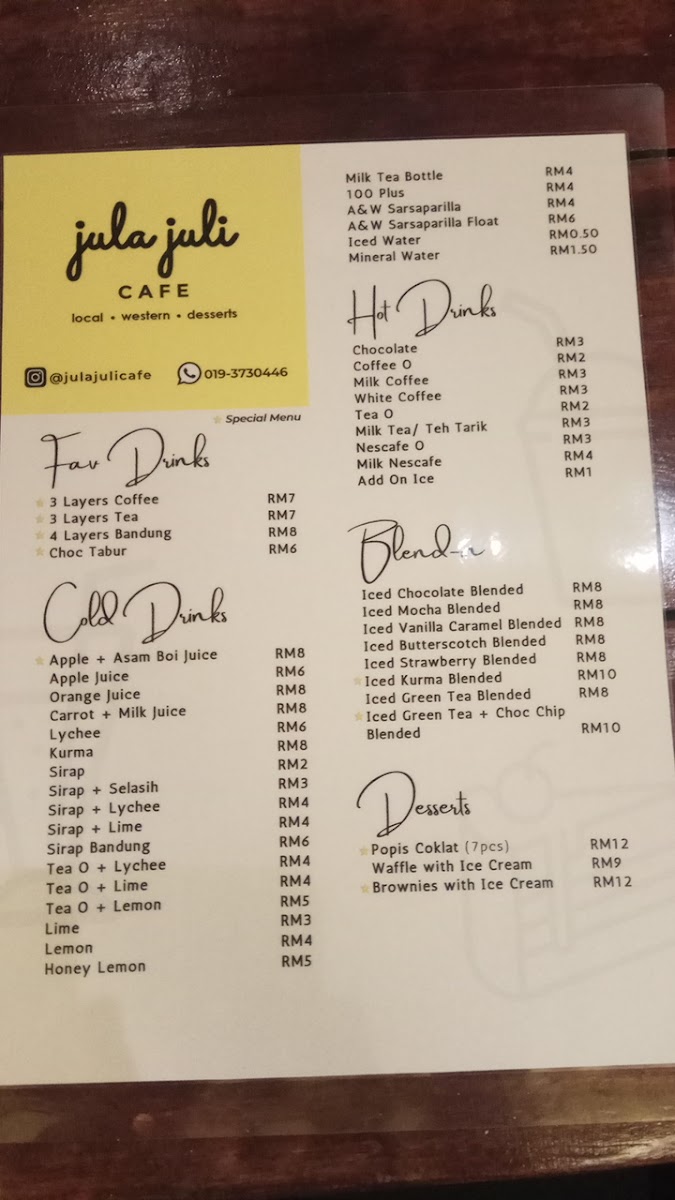 jula juli
CAFE
local • western • desserts
@julajulicafe 019-3730446
Special Menu
Fav Drinks
3 Layers Coffee RM7
3 Layers Tea RM7
4 Layers Bandung RM8
Choc Tabur RM6
Cold Drinks
Apple + Asam Boi Juice RM8
Apple Juice RM6
Orange Juice RM8
Carrot + Milk Juice RM8
Lychee RM6
Kurma RM8
Sirap RM2
Sirap + Selasih RM3
Sirap + Lychee RM4
Sirap + Lime RM4
Sirap Bandung RM6
Tea O + Lychee RM4
Tea O + Lime RM4
Tea O + Lemon RM5
Lime RM3
Lemon RM4
Honey Lemon RM5
Milk Tea Bottle RM4
100 Plus RM4
A&W Sarsaparilla RM4
A&W Sarsaparilla Float RM6
Iced Water RM0.50
Mineral Water RM1.50
Hot Drinks
Chocolate RM3
Coffee O RM2
Milk Coffee RM3
White Coffee RM3
Tea O RM2
Milk Tea/ Teh Tarik RM3
Nescafe O RM3
Milk Nescafe RM4
Add On Ice RM1
Blend-n
Iced Chocolate Blended RM8
Iced Mocha Blended RM8
Iced Vanilla Caramel Blended RM8
Iced Butterscotch Blended RM8
Iced Strawberry Blended RM8
Iced Kurma Blended RM10
Iced Green Tea Blended RM8
Iced Green Tea + Choc Chip
Blended RM10
Desserts
Popis Coklat (7pcs) RM12
Waffle with Ice Cream RM9
Brownies with Ice Cream RM12